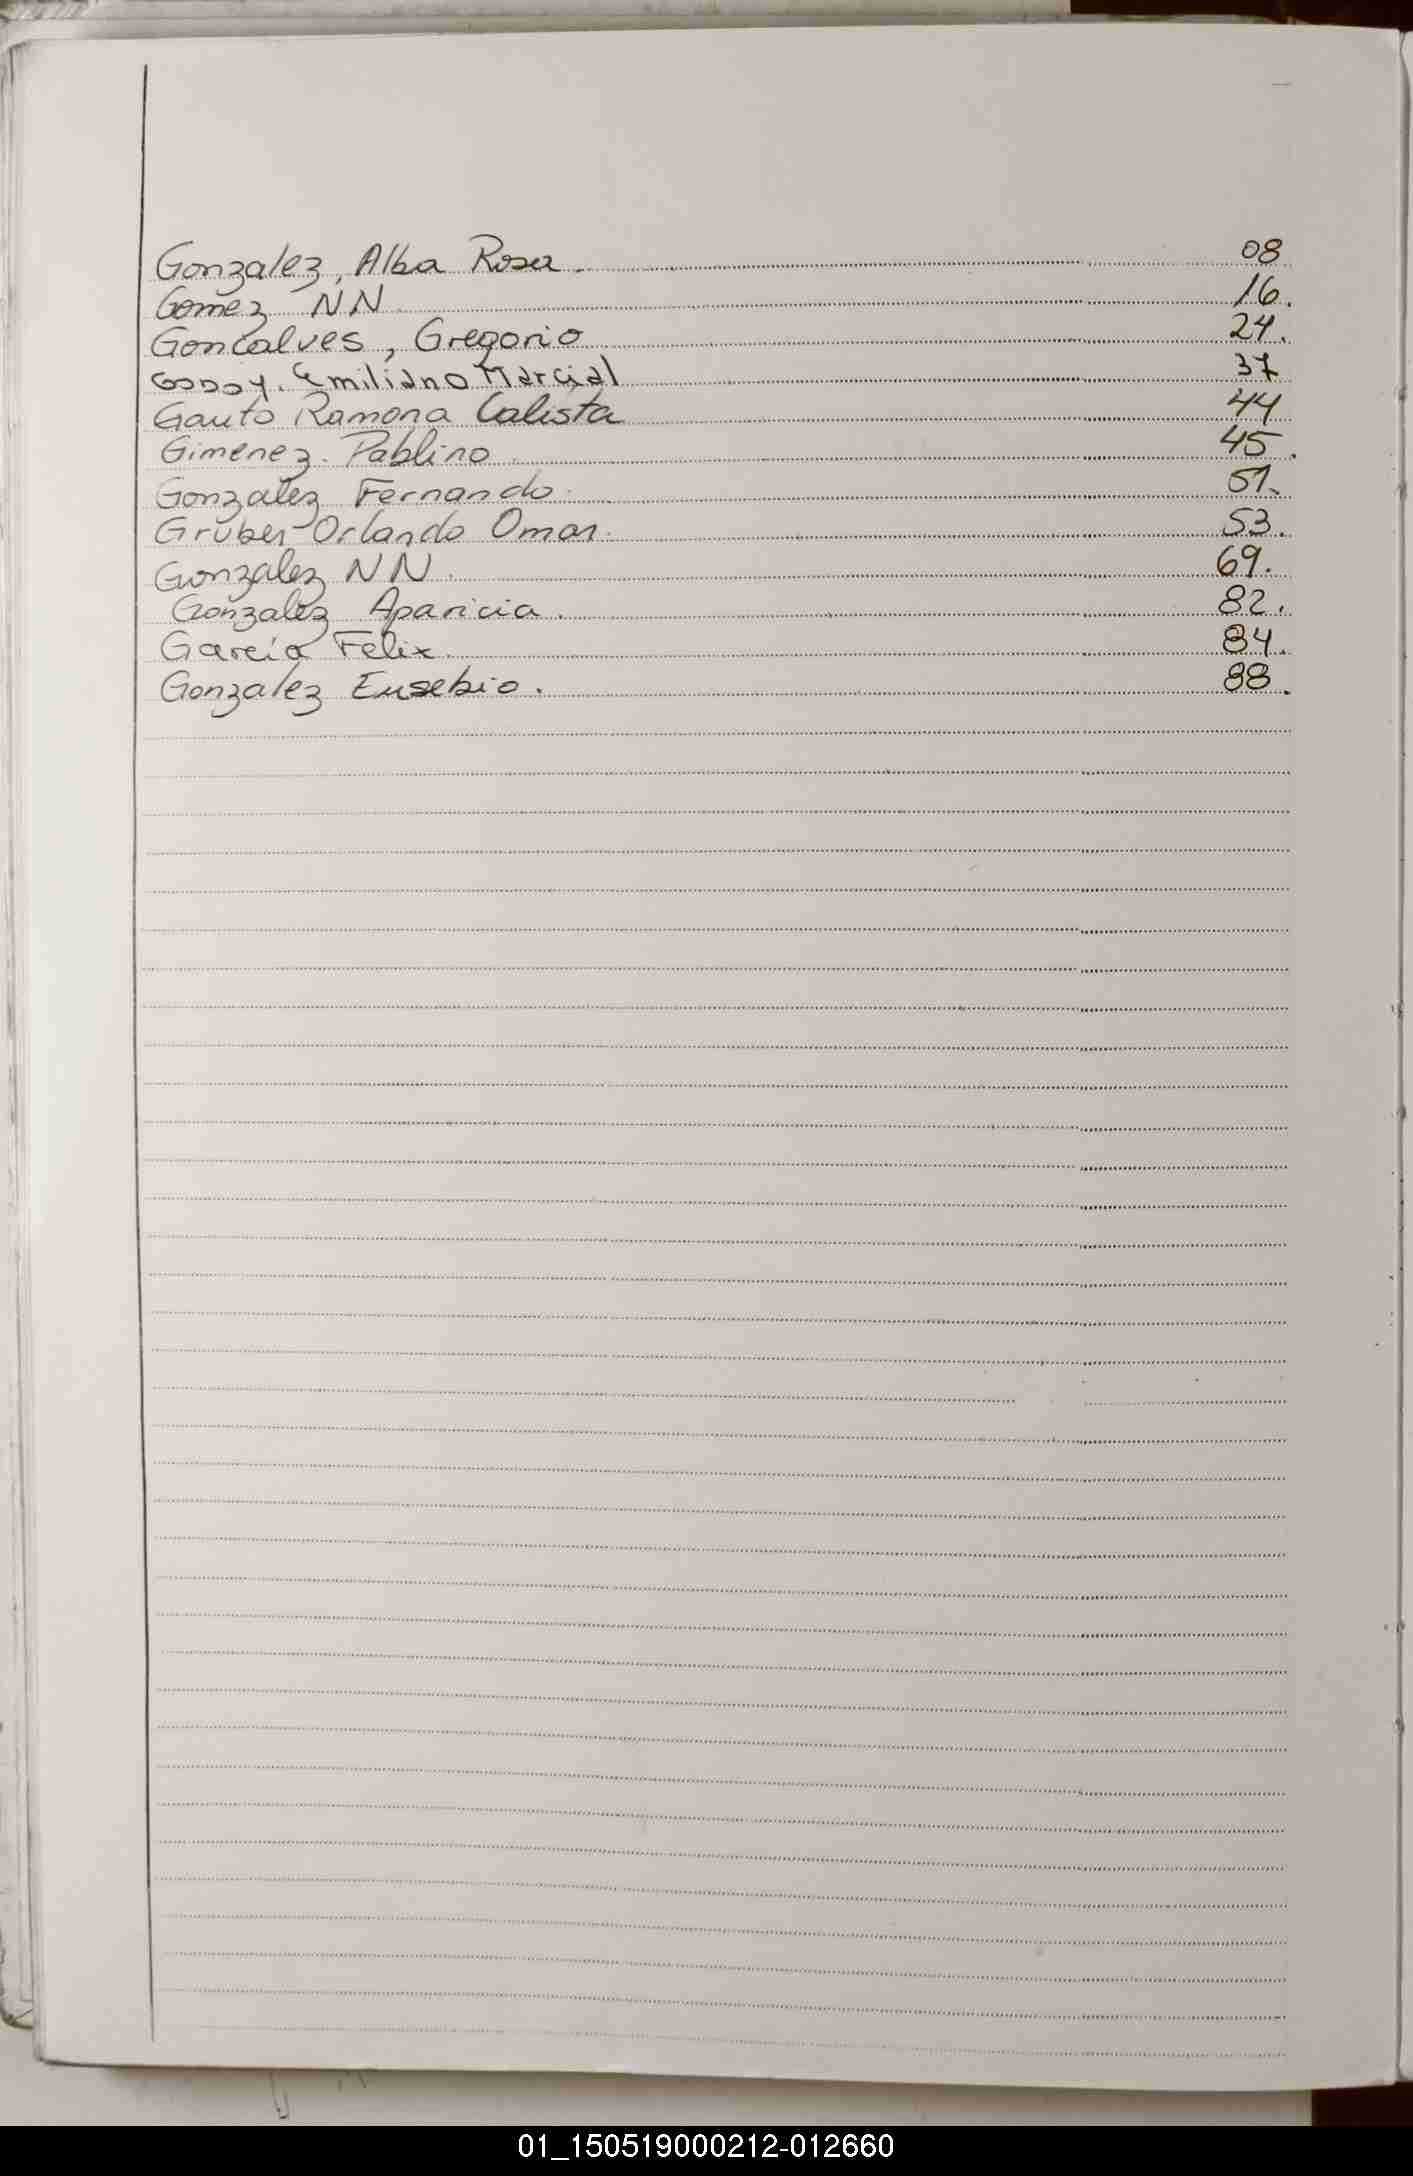 Gonzalez, Alba Rosa. 08
Gomez NN 16.
Goncalves, Gregorio 24.
Godoy. Emiliano Marcial 37
Gauto Ramona Calista 44
Gimenez. Pablino 45.
Gonzalez Fernando. 51.
Gruber Orlando Omar. 53.
Gonzalez NN. 69.
Gonzalez Aparicia. 82.
García Felix. 84.
Gonzalez Eusebio. 88.
01_150519000212-012660